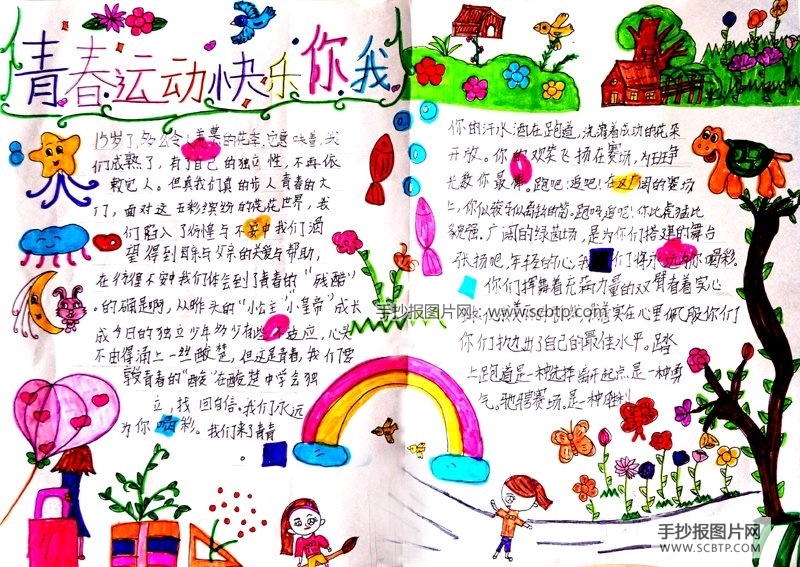 青春运动快乐你我
15岁了,多么令人羡慕的花季,它意味着,我
们成熟了,有了自己的独立性,不再依
赖它人。但真我们真的步人青春的大
门,面对这五彩缤纷的花花世界,我
们陷入了彷惶与不安中我们渴
望得到母亲与父亲的关爱与帮助,
在彷徨不安中我们体会到了青春的"残酷"
。的确是啊,从昨天的"小公主""小皇帝"成长
成今日的独立少年多少有些不适应,心头
不由得涌上一丝酸楚,但这是青春,我们
青春的"酸"在酸楚中学会独
立,找回自信。我们永远
为你喝彩。我们来青
你的汗水洒在跑道,浇灌着成功的花朵
开放。你的欢笑飞扬在赛场,为班争
光数你最棒。跑吧!追吧!在这广阔的赛场
上,你似骏马似箭的笛。跑吗追吧!你比虎猛比
豹强。广阔的绿茵场,是为你们搭建的舞台
张扬吧,年轻的心,我们将永远为你喝彩。
你们挥舞着充满力量的双臂看着实心
球 实在心里佩服你们
你们抛出了自己的最佳水平。踏
上跑道是一种选择离开起点是一种勇
气。驰骋赛场。是一种胜利
手抄报图片网:www.scbtp.com
手抄报图片网
WWW.SCBTP.COM